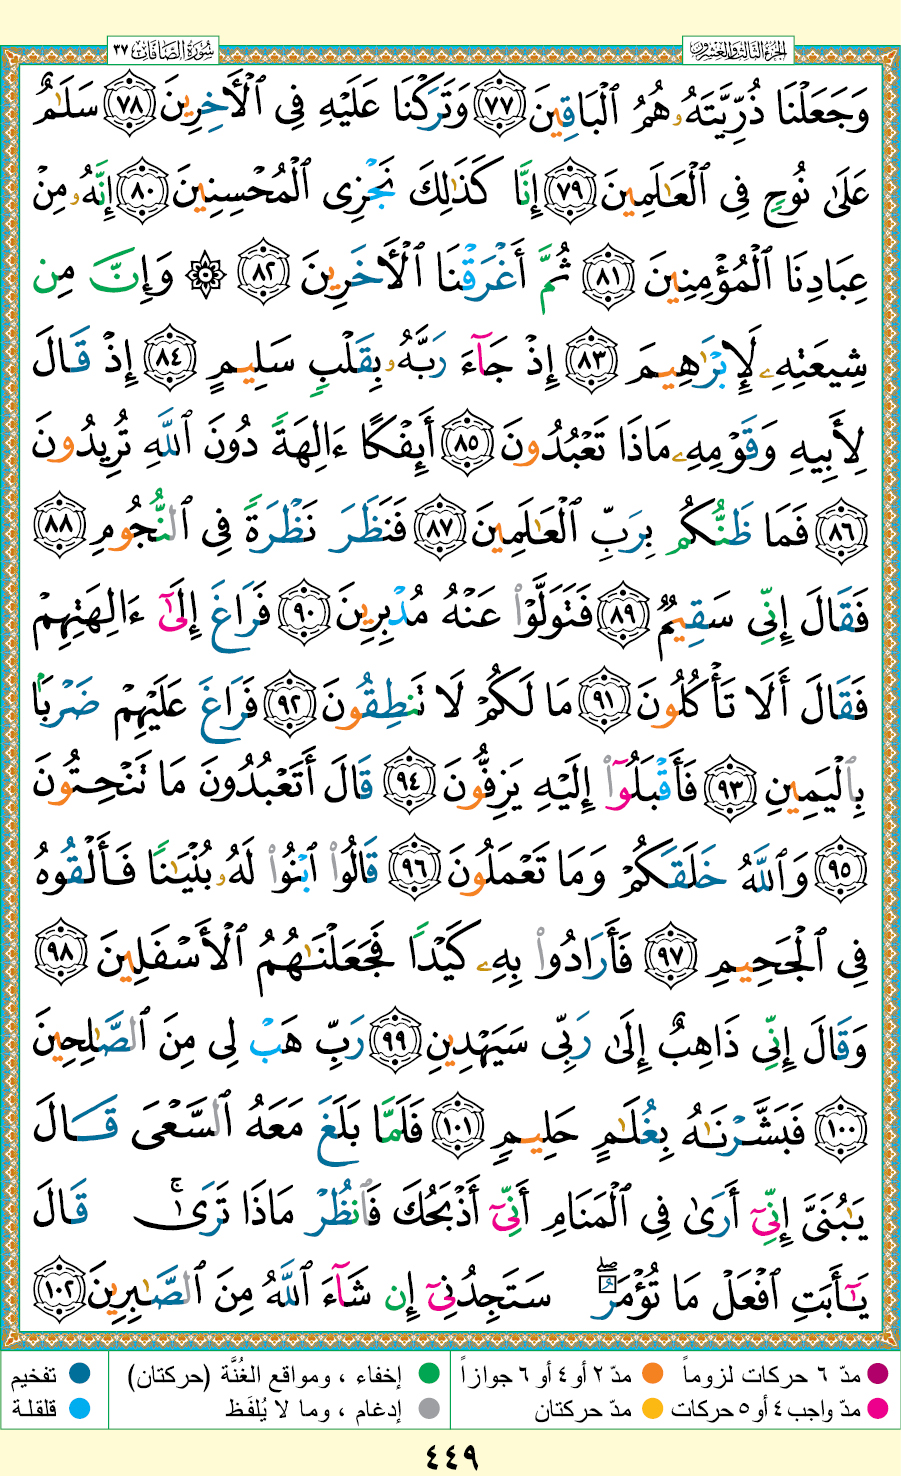 سُورَةُ الصَّافَّاتِ ٣٧
الجُزْءُ الثَّالِثُ وَالعِشْرُونَ
وَجَعَلْنَا ذُرِّيَّتَهُۥ هُمُ ٱلْبَاقِينَ ٧٧ وَتَرَكْنَا عَلَيْهِ فِى ٱلْأَخِرِينَ ٧٨ سَلَٰمٌ
عَلَىٰ نُوحٍ فِى ٱلْعَٰلَمِينَ ٧٩ إِنَّا كَذَٰلِكَ نَجْزِى ٱلْمُحْسِنِينَ ٨٠ إِنَّهُۥ مِنْ
عِبَادِنَا ٱلْمُؤْمِنِينَ ٨١ ثُمَّ أَغْرَقْنَا ٱلْأَخَرِينَ ٨٢ ۞ وَإِنَّ مِن
شِيعَتِهِۦ لَإِبْرَٰهِيمَ ٨٣ إِذْ جَآءَ رَبَّهُۥ بِقَلْبٍ سَلِيمٍ ٨٤ إِذْ قَالَ
لِأَبِيهِ وَقَوْمِهِۦ مَاذَا تَعْبُدُونَ ٨٥ أَئِفْكًا ءَالِهَةً دُونَ ٱللَّهِ تُرِيدُونَ
٨٦ فَمَا ظَنُّكُم بِرَبِّ ٱلْعَٰلَمِينَ ٨٧ فَنَظَرَ نَظْرَةً فِى ٱلنُّجُومِ ٨٨
فَقَالَ إِنِّى سَقِيمٌ ٨٩ فَتَوَلَّوْا۟ عَنْهُ مُدْبِرِينَ ٩٠ فَرَاغَ إِلَىٰٓ ءَالِهَتِهِمْ
فَقَالَ أَلَا تَأْكُلُونَ ٩١ مَا لَكُمْ لَا تَنطِقُونَ ٩٢ فَرَاغَ عَلَيْهِمْ ضَرْبًۢا
بِٱلْيَمِينِ ٩٣ فَأَقْبَلُوٓا۟ إِلَيْهِ يَزِفُّونَ ٩٤ قَالَ أَتَعْبُدُونَ مَا تَنْحِتُونَ
٩٥ وَٱللَّهُ خَلَقَكُمْ وَمَا تَعْمَلُونَ ٩٦ قَالُوا۟ ٱبْنُوا۟ لَهُۥ بُنْيَٰنًا فَأَلْقُوهُ
فِى ٱلْجَحِيمِ ٩٧ فَأَرَادُوا۟ بِهِۦ كَيْدًا فَجَعَلْنَٰهُمُ ٱلْأَسْفَلِينَ ٩٨
وَقَالَ إِنِّى ذَاهِبٌ إِلَىٰ رَبِّى سَيَهْدِينِ ٩٩ رَبِّ هَبْ لِى مِنَ ٱلصَّٰلِحِينَ
١٠٠ فَبَشَّرْنَٰهُ بِغُلَٰمٍ حَلِيمٍ ١٠١ فَلَمَّا بَلَغَ مَعَهُ ٱلسَّعْىَ قَالَ
يَٰبُنَىَّ إِنِّىٓ أَرَىٰ فِى ٱلْمَنَامِ أَنِّىٓ أَذْبَحُكَ فَٱنظُرْ مَاذَا تَرَىٰ ۚ قَالَ
يَٰٓأَبَتِ ٱفْعَلْ مَا تُؤْمَرُ ۖ سَتَجِدُنِىٓ إِن شَآءَ ٱللَّهُ مِنَ ٱلصَّٰبِرِينَ ١٠٢
مدّ ٦ حركات لزوماً مدّ ٢ أو ٤ أو ٦ جوازاً إخفاء ، ومواقع الغُنَّة (حركتان) تفخيم
مدّ واجب ٤ أو ٥ حركات مدّ حركتان إدغام ، وما لا يُلفَظ قلقلة
٤٤٩